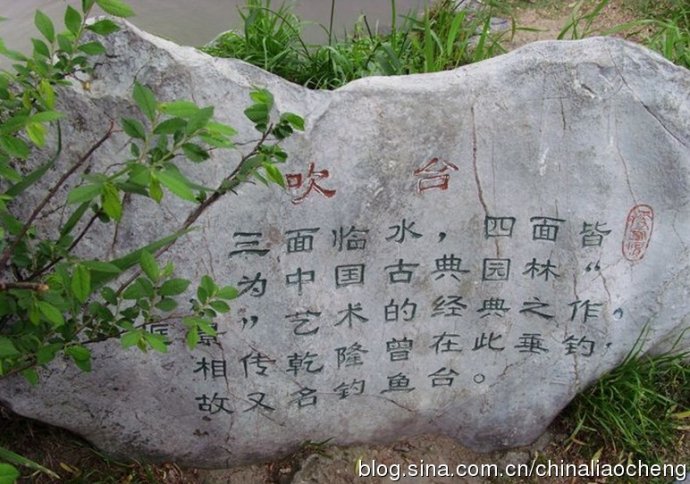 吹台
三面临水，四面皆“
景”为中国古典园林
艺术的经典之作。
相传乾隆曾在此垂钓，
故又名钓鱼台。
blog.sina.com.cn/chinaliaocheng